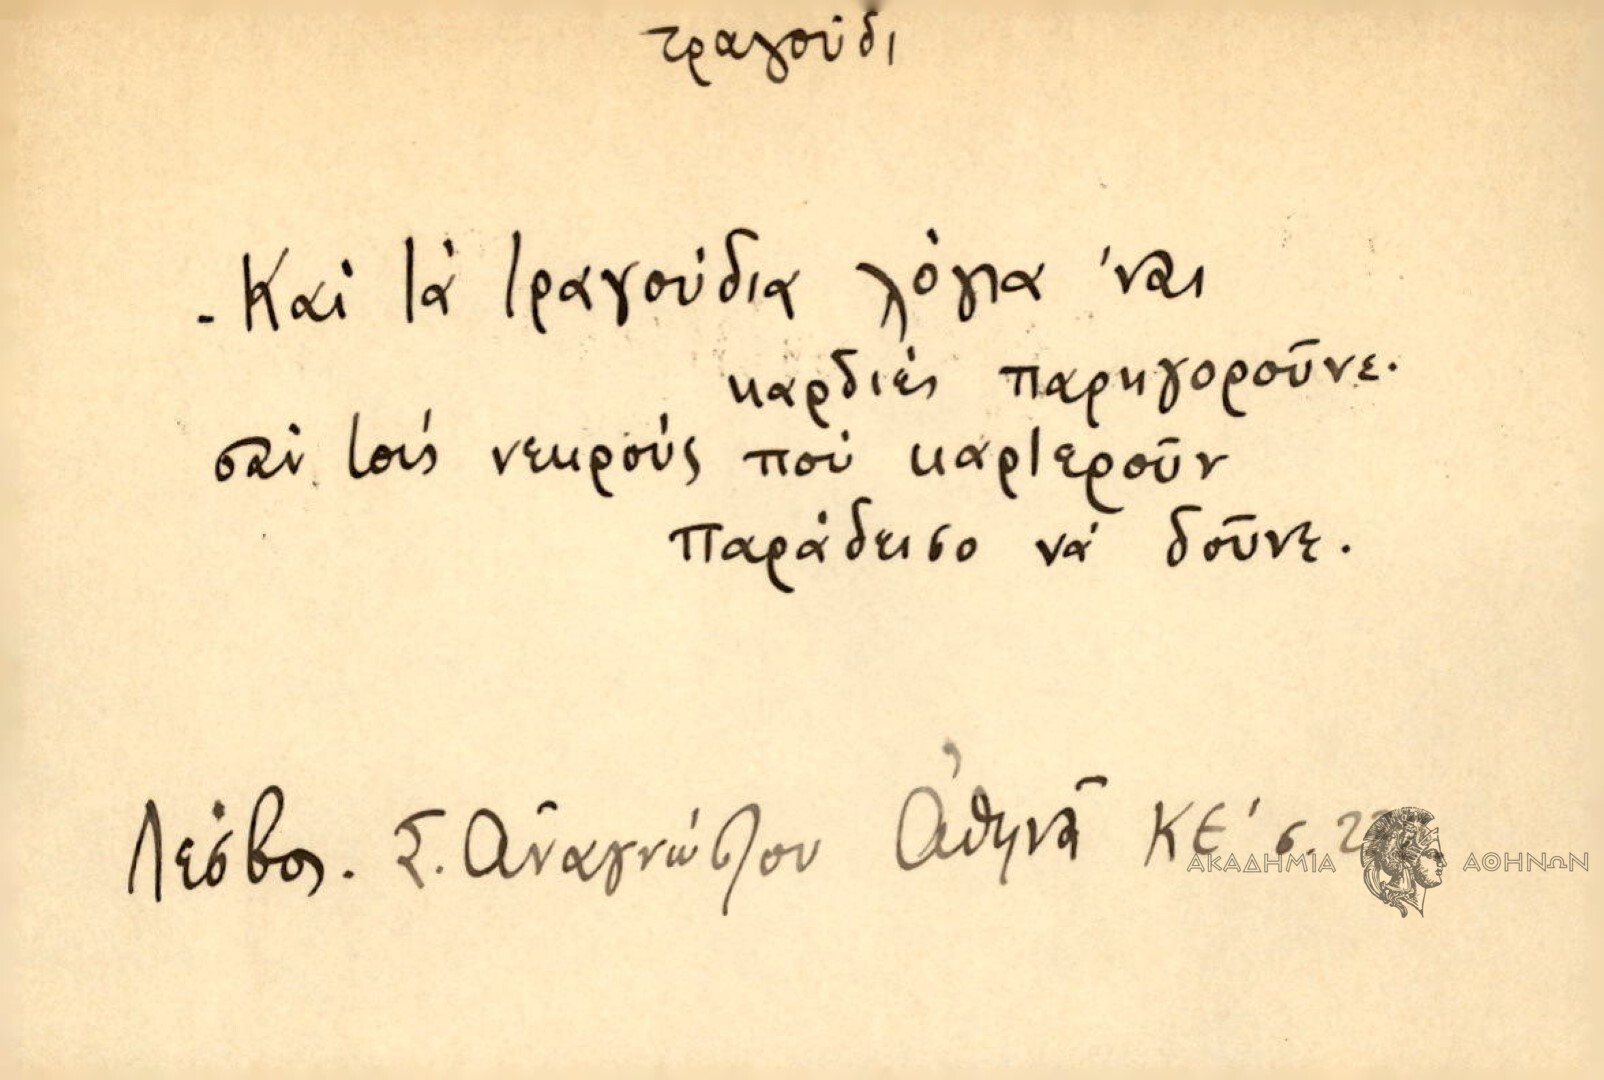 τραγούδι
- Καὶ τὰ τραγούδια λόγια 'ναι
καρδιές παρηγοροῦνε.
σαν τούς νεκρούς πού καρτεροῦν
Παράδεισο νά δοῦνε.
Λέσβος. Σ. Ἀναγνώστου Ἀθηνᾶ ΚΕ' σ.
ΑΚΑΔΗΜΙΑ ΑΘΗΝΩΝ